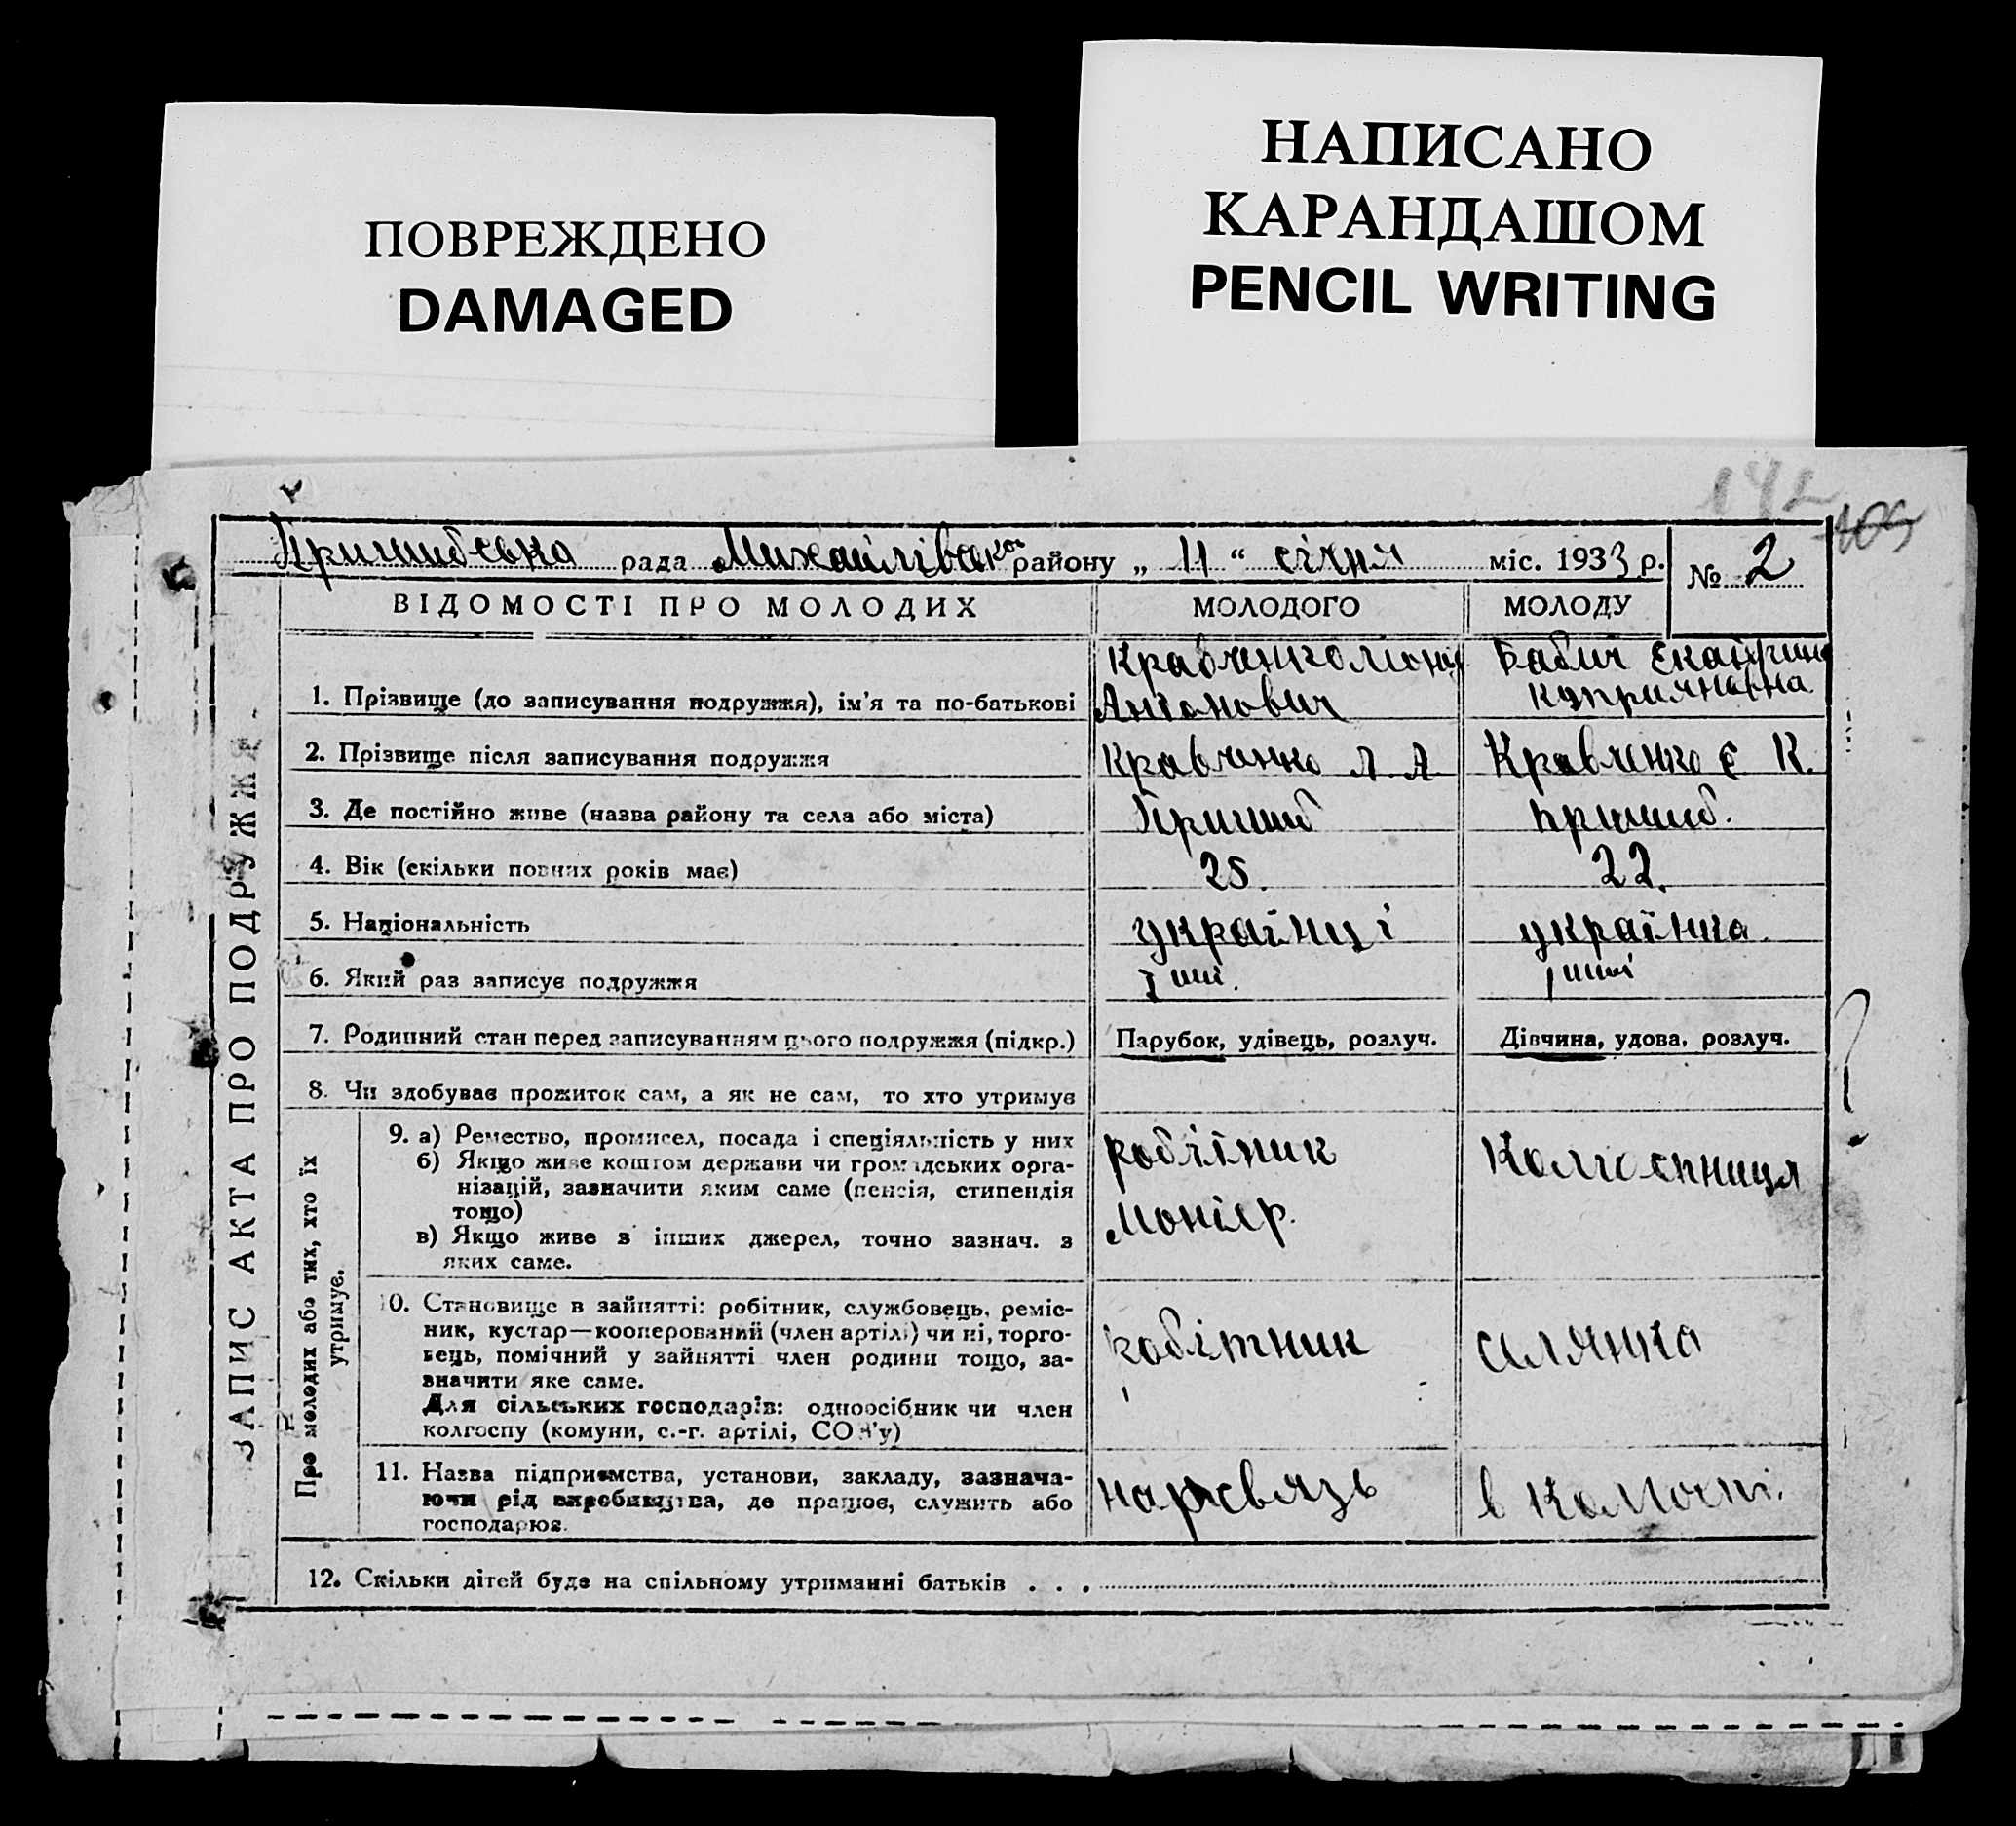 ПОВРЕЖДЕНО
DAMAGED
НАПИСАНО
КАРАНДАШОМ
PENCIL WRITING
142
109
Пришибська рада Михайлівської району „ 11 “ січня міс. 1933 р. № 2
ВІДОМОСТІ ПРО МОЛОДИХ МОЛОДОГО МОЛОДУ
ЗАПИС АКТА ПРО ПОДРУЖЖЯ
1. Прізвище (до записування подружжя), ім'я та по-батькові
Кравченко
Антонович
Бабич Екатирина
Куприяновна
2. Прізвище після записування подружжя Кравченко Л А Кравченко Є К.
3. Де постійно живе (назва району та села або міста) Пришиб Пришиб.
4. Вік (скільки повних років має) 25. 22.
5. Національність українці українка.
6. Який раз записує подружжя I ши. I ший
7. Родинний стан перед записуванням цього подружжя (підкр.) Парубок, удівець, розлуч. Дівчина, удова, розлуч.
8. Чи здобуває прожиток сам, а як не сам, то хто утримує
Про молодих або тих, хто їх
утримує.
9. а) Ремество, промисел, посада і спеціяльність у них
б) Якщо живе коштом держави чи громадських орга-
нізацій, зазначити яким саме (пенсія, стипендія
тощо)
в) Якщо живе з інших джерел, точно зазнач. з
яких саме.
робітник
Монтер.
10. Становище в зайнятті: робітник, службовець, реміс-
ник, кустар—кооперований (член артілі) чи ні, торго-
вець, помічний у зайнятті член родини тощо, за-
значити яке саме.
Для сільських господарів: одноосібник чи член
колгоспу (комуни, с.-г. артілі, СОЗ'у)
робітник селянка
11. Назва підприємства, установи, закладу, зазнача-
ючи рід виробництва, де працює, служить або
господарює.
нарквязь
12. Скільки дітей буде на спільному утриманні батьків . . .